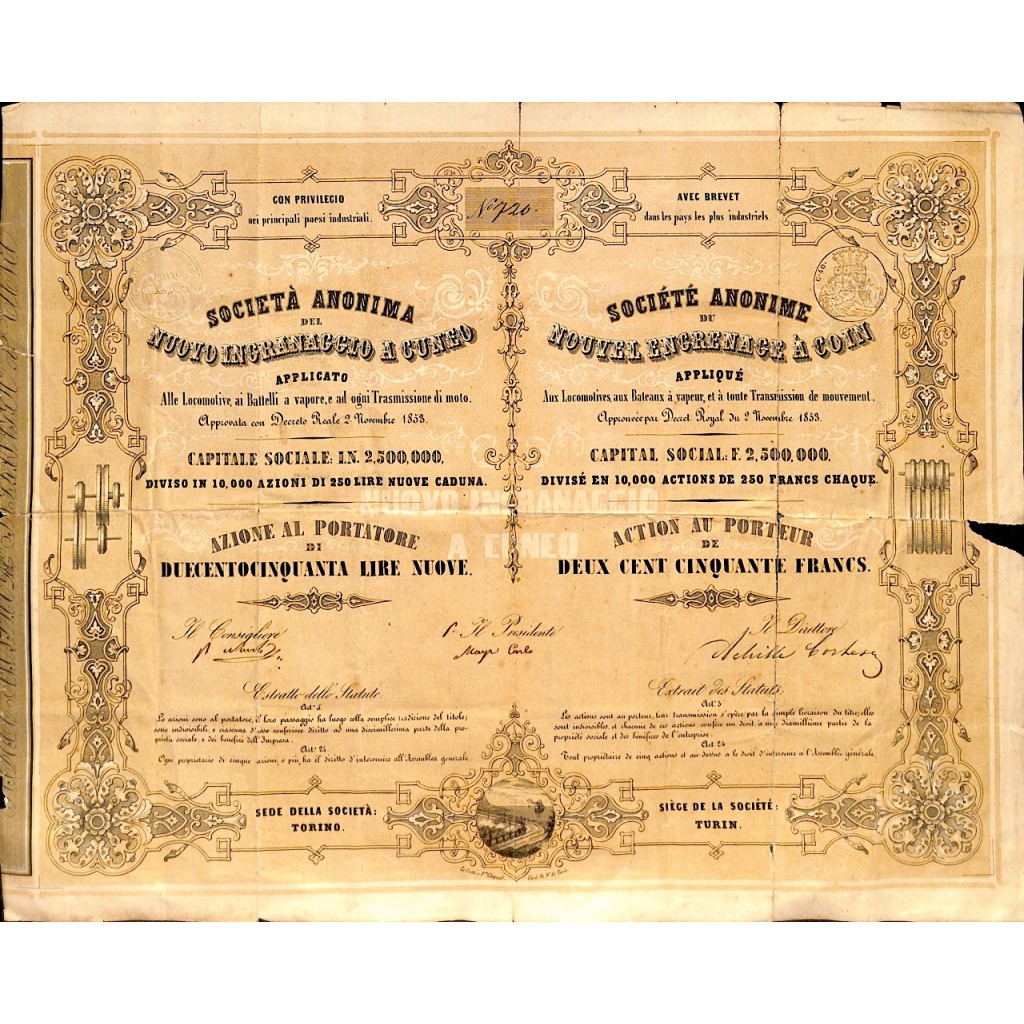 CON PRIVILEGIO
nei principali paesi industriali.
No. 720.
AVEC BREVET
dans les pays les plus industriels.
SOCIETÀ ANONIMA
DEL
NUOVO INGRANAGGIO A CUNEO
APPLICATO
Alle Locomotive, ai Battelli a vapore, e ad ogni Trasmissione di moto.
Approvata con Decreto Reale 2. Novembre 1853.
CAPITALE SOCIALE: L.N. 2,500,000,
DIVISO IN 10,000 AZIONI DI 250 LIRE NUOVE CADUNA.
AZIONE AL PORTATORE
DI
DUECENTOCINQUANTA LIRE NUOVE.
SOCIÉTÉ ANONIME
DU
NOUVEL ENGRENAGE À COIN
APPLIQUÉ
Aux Locomotives, aux Bateaux à vapeur, et à toute Transmission de mouvement.
Approuvée par Decret Royal du 2 Novembre 1853.
CAPITAL SOCIAL: F. 2,500,000,
DIVISÉ EN 10,000 ACTIONS DE 250 FRANCS CHAQUE.
ACTION AU PORTEUR
DE
DEUX CENT CINQUANTE FRANCS.
NUOVO INGRANAGGIO
A CUNEO
Il Consigliere
Pr. Il Presidente
Mayr Carlo
Il Direttore
Achille
Estratto dello Statuto.
Art. 5
Le azioni sono al portatore, il loro passaggio ha luogo colla semplice tradizione del titolo;
sono indivisibili, e ciascuna d'esse conferisce diritto ad una diecimillesima parte della pro-
prietà sociale, e dei benefizi dell'Impresa.
Art. 24
Ogni proprietario di cinque azioni, o più, ha il diritto d'intervenire all'Assemblea generale.
Extrait des Statuts.
Art. 5
Les actions sont au porteur, leur transmission s'opère par la simple livraison du titre; elles
sont indivisibles, et chacune de ces actions confère un droit à une dixmillième partie de la
propriété sociale et des bénéfices de l'entreprise.
Art. 24
Tout propriétaire de cinq actions et au dessus a le droit d'intervenir à l'Assemblée générale.
SEDE DELLA SOCIETÀ:
TORINO.
SIÈGE DE LA SOCIÉTÉ:
TURIN.